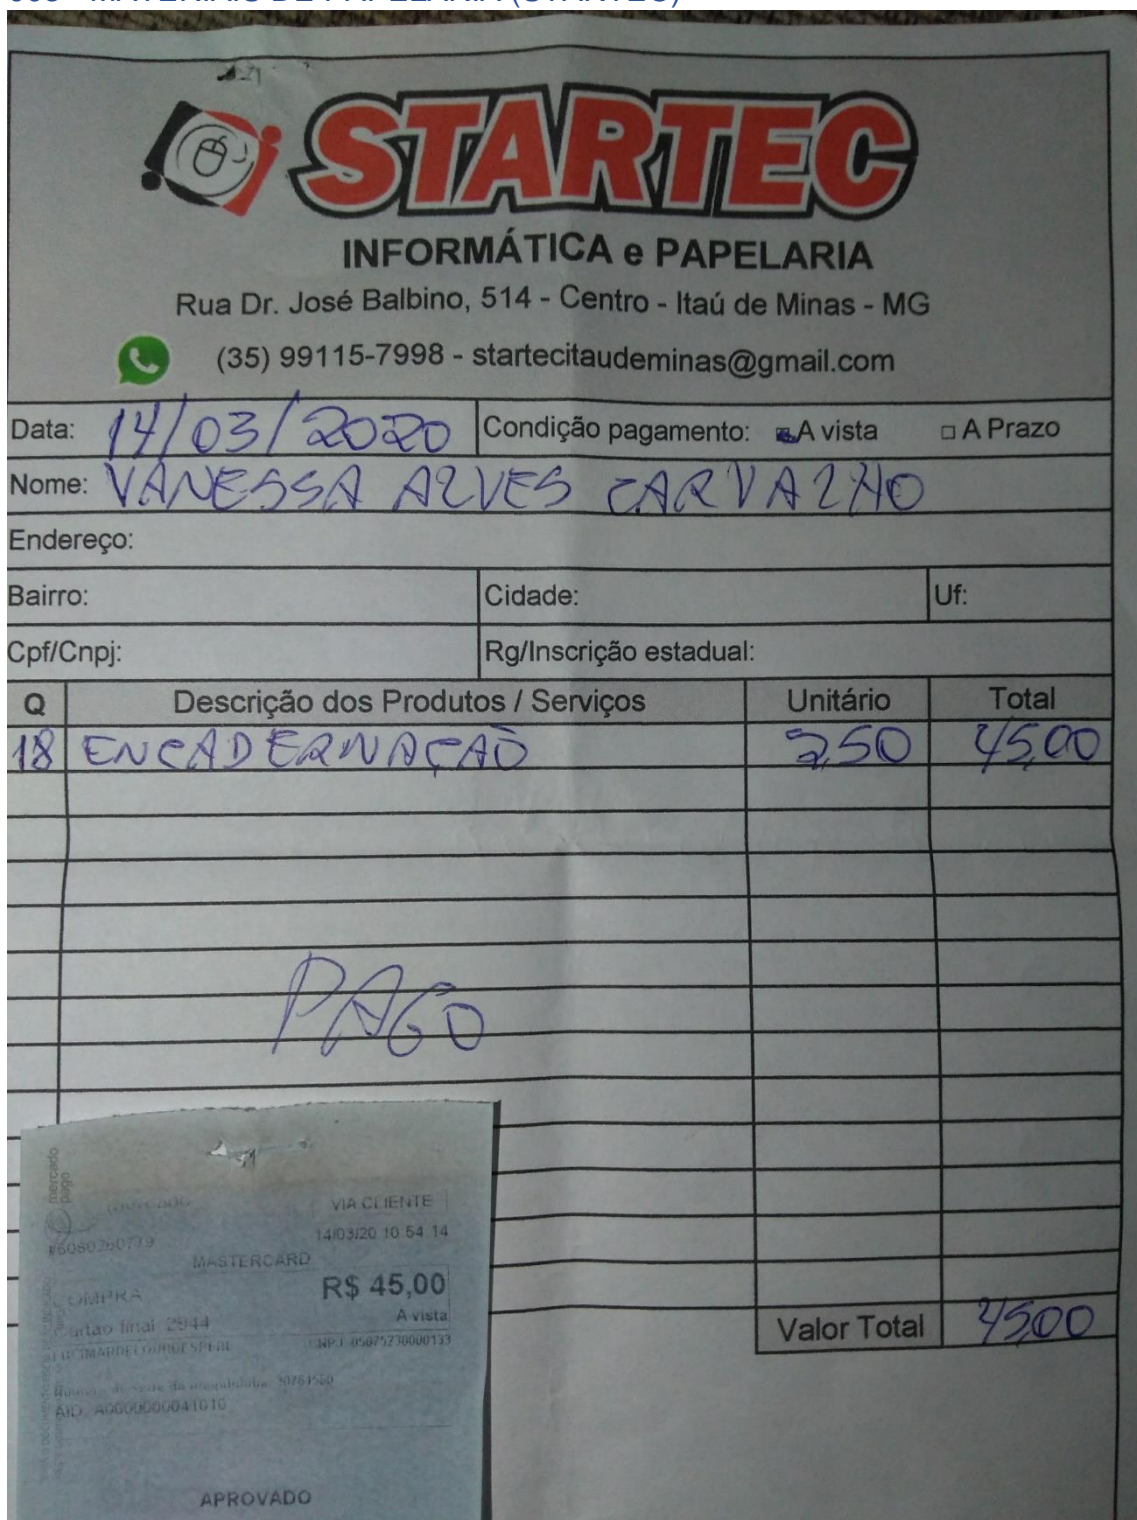 MATERIAIS DE PAPELARIA (STARTEC)
STARTEC
INFORMÁTICA e PAPELARIA
Rua Dr. José Balbino, 514 - Centro - Itaú de Minas - MG
(35) 99115-7998 - startecitaudeminas@gmail.com
Data: 14/03/2020 Condição pagamento: A vista □ A Prazo
Nome: VANESSA ALVES CARVALHO
Endereço:
Bairro: Cidade: Uf:
Cpf/Cnpj: Rg/Inscrição estadual:
Q Descrição dos Produtos / Serviços Unitário Total
18 ENCADERNAÇÃO 2,50 45,00
PAGO
mercado pago
VIA CLIENTE
#6080260779 14/03/20 10:54:14
MASTERCARD
COMPRA R$ 45,00
Cartão final: 2944 A vista
CNPJ: 05075230000133
AID: A0000000041010
APROVADO
Valor Total 45,00